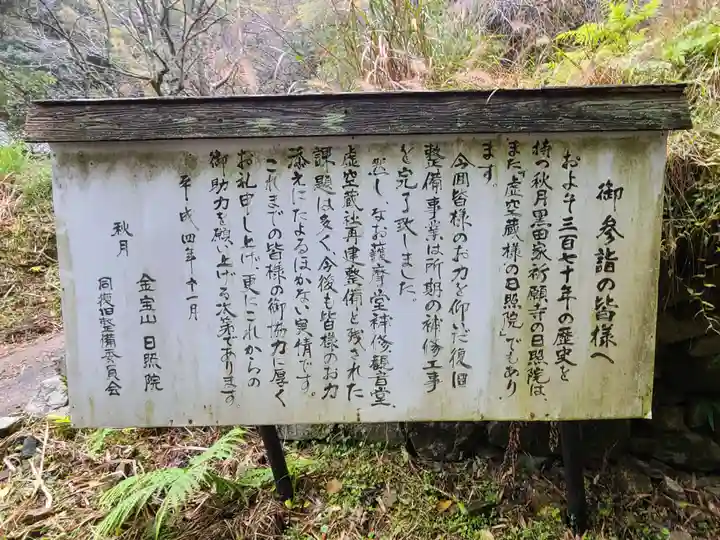 御参詣の皆様へ
およそ三百七十年の歴史を
持つ秋月黒田家祈願寺の日照院は、
また「虚空蔵様の日照院」でもあり
ます。
今回皆様のお力を仰いだ復旧
整備事業は所期の補修工事
を完了致しました。
然し、なお護摩堂補修、観音堂、
虚空蔵社再建整備と残された
課題は多く、今後も皆様のお力
添えにたよるほかない実情です。
これまでの皆様の御協力に厚く
お礼申し上げ、更にこれからの
御助力を願い上げる次第であります
平成四年十一月
秋月 金宝山 日照院
同復旧整備委員会